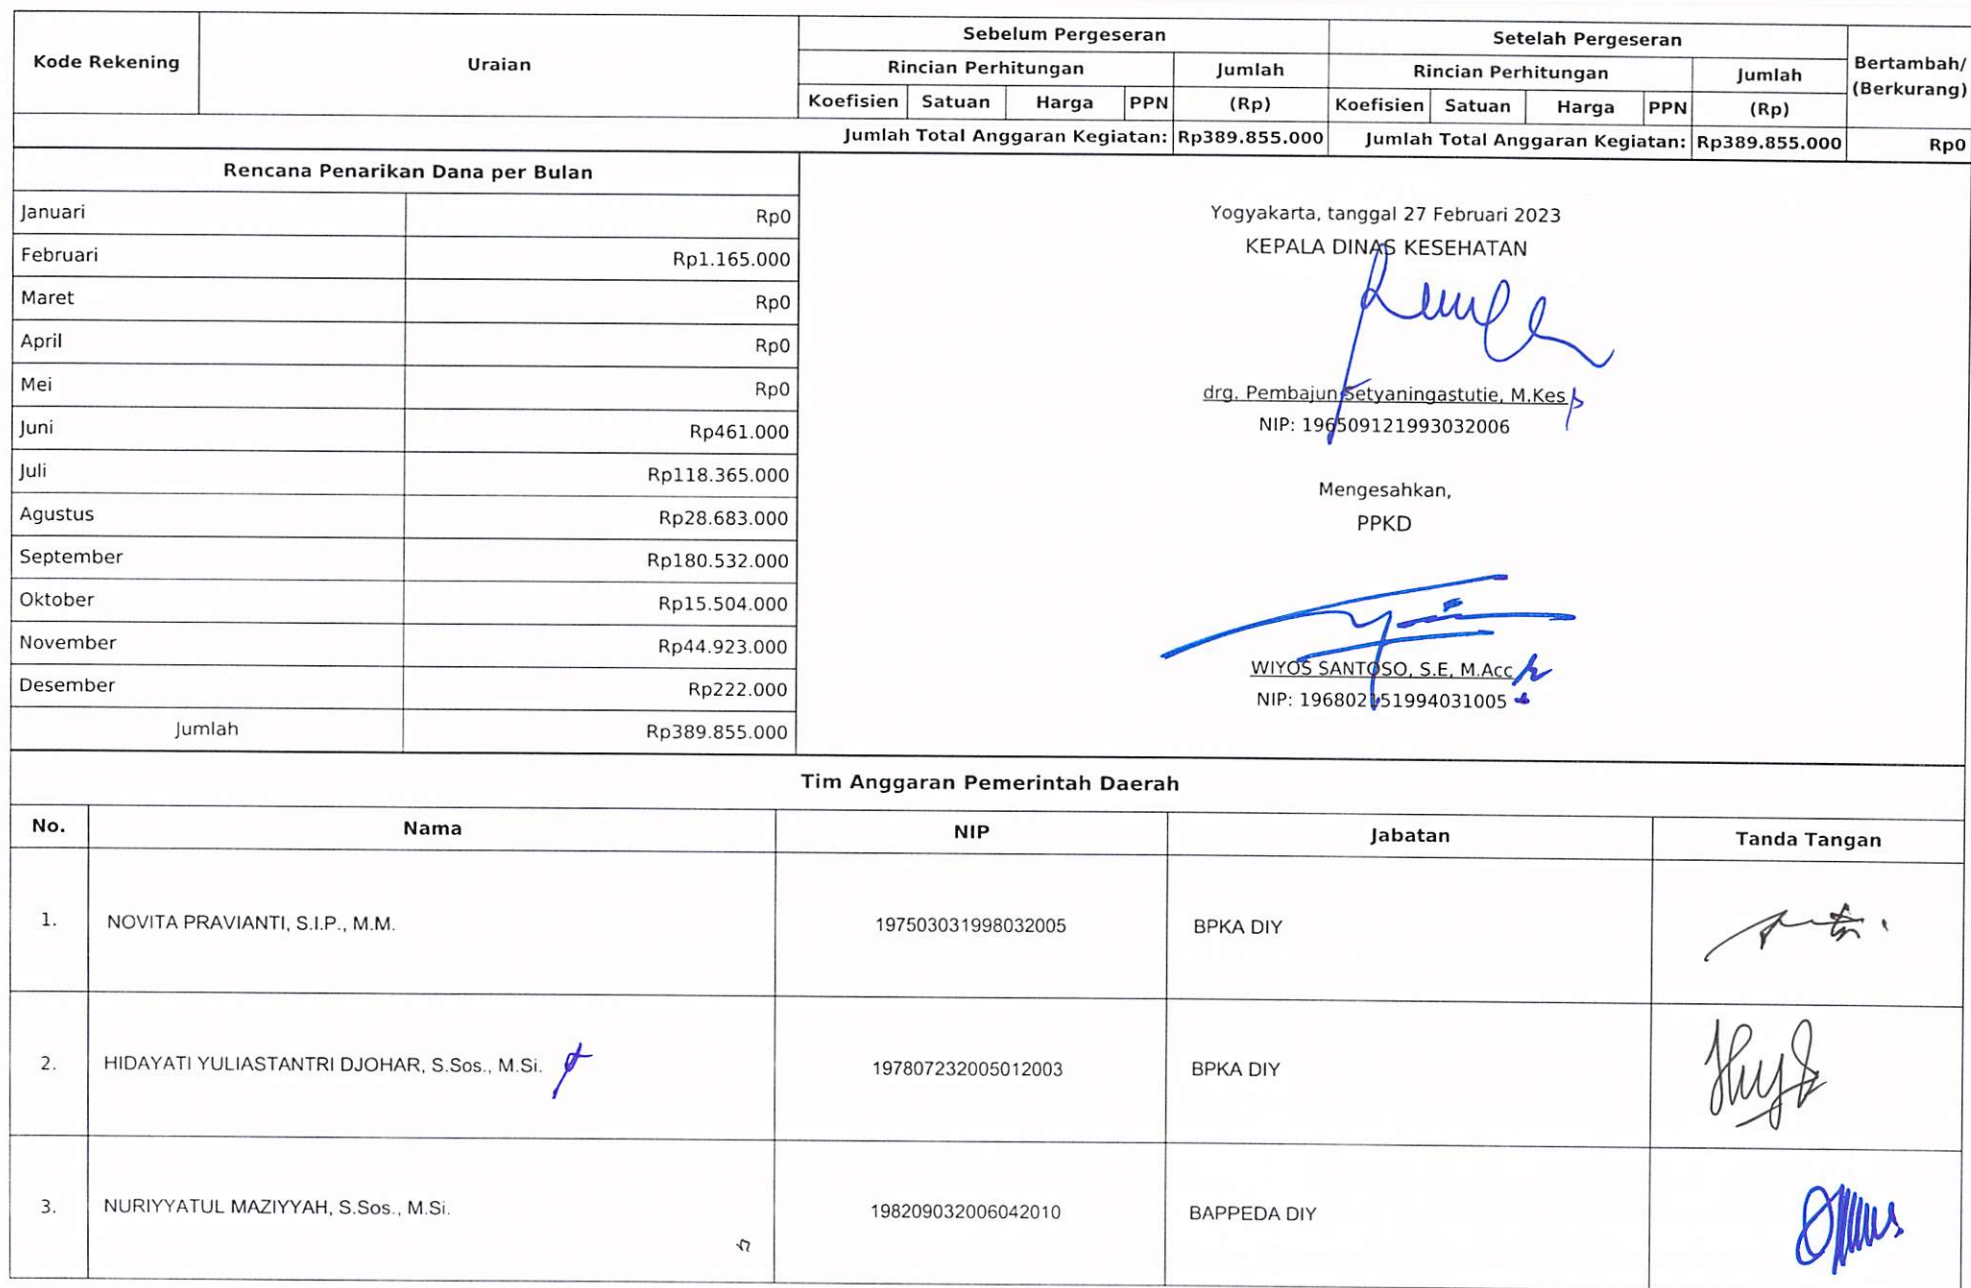 Kode Rekening Uraian Sebelum Pergeseran Setelah Pergeseran Bertambah/ (Berkurang)
Rincian Perhitungan Jumlah (Rp) Rincian Perhitungan Jumlah (Rp)
Koefisien Satuan Harga PPN Koefisien Satuan Harga PPN
Jumlah Total Anggaran Kegiatan: Rp389.855.000 Jumlah Total Anggaran Kegiatan: Rp389.855.000 Rp0
Rencana Penarikan Dana per Bulan
Januari Rp0
Februari Rp1.165.000
Maret Rp0
April Rp0
Mei Rp0
Juni Rp461.000
Juli Rp118.365.000
Agustus Rp28.683.000
September Rp180.532.000
Oktober Rp15.504.000
November Rp44.923.000
Desember Rp222.000
Jumlah Rp389.855.000
Yogyakarta, tanggal 27 Februari 2023
KEPALA DINAS KESEHATAN
drg. Pembajun Setyaningastutie, M.Kes
NIP: 196509121993032006
Mengesahkan,
PPKD
WIYOS SANTOSO, S.E, M.Acc
NIP: 196802151994031005
Tim Anggaran Pemerintah Daerah
No. Nama NIP Jabatan Tanda Tangan
1. NOVITA PRAVIANTI, S.I.P., M.M. 197503031998032005 BPKA DIY
2. HIDAYATI YULIASTANTRI DJOHAR, S.Sos., M.Si. 197807232005012003 BPKA DIY
3. NURIYYATUL MAZIYYAH, S.Sos., M.Si. 198209032006042010 BAPPEDA DIY